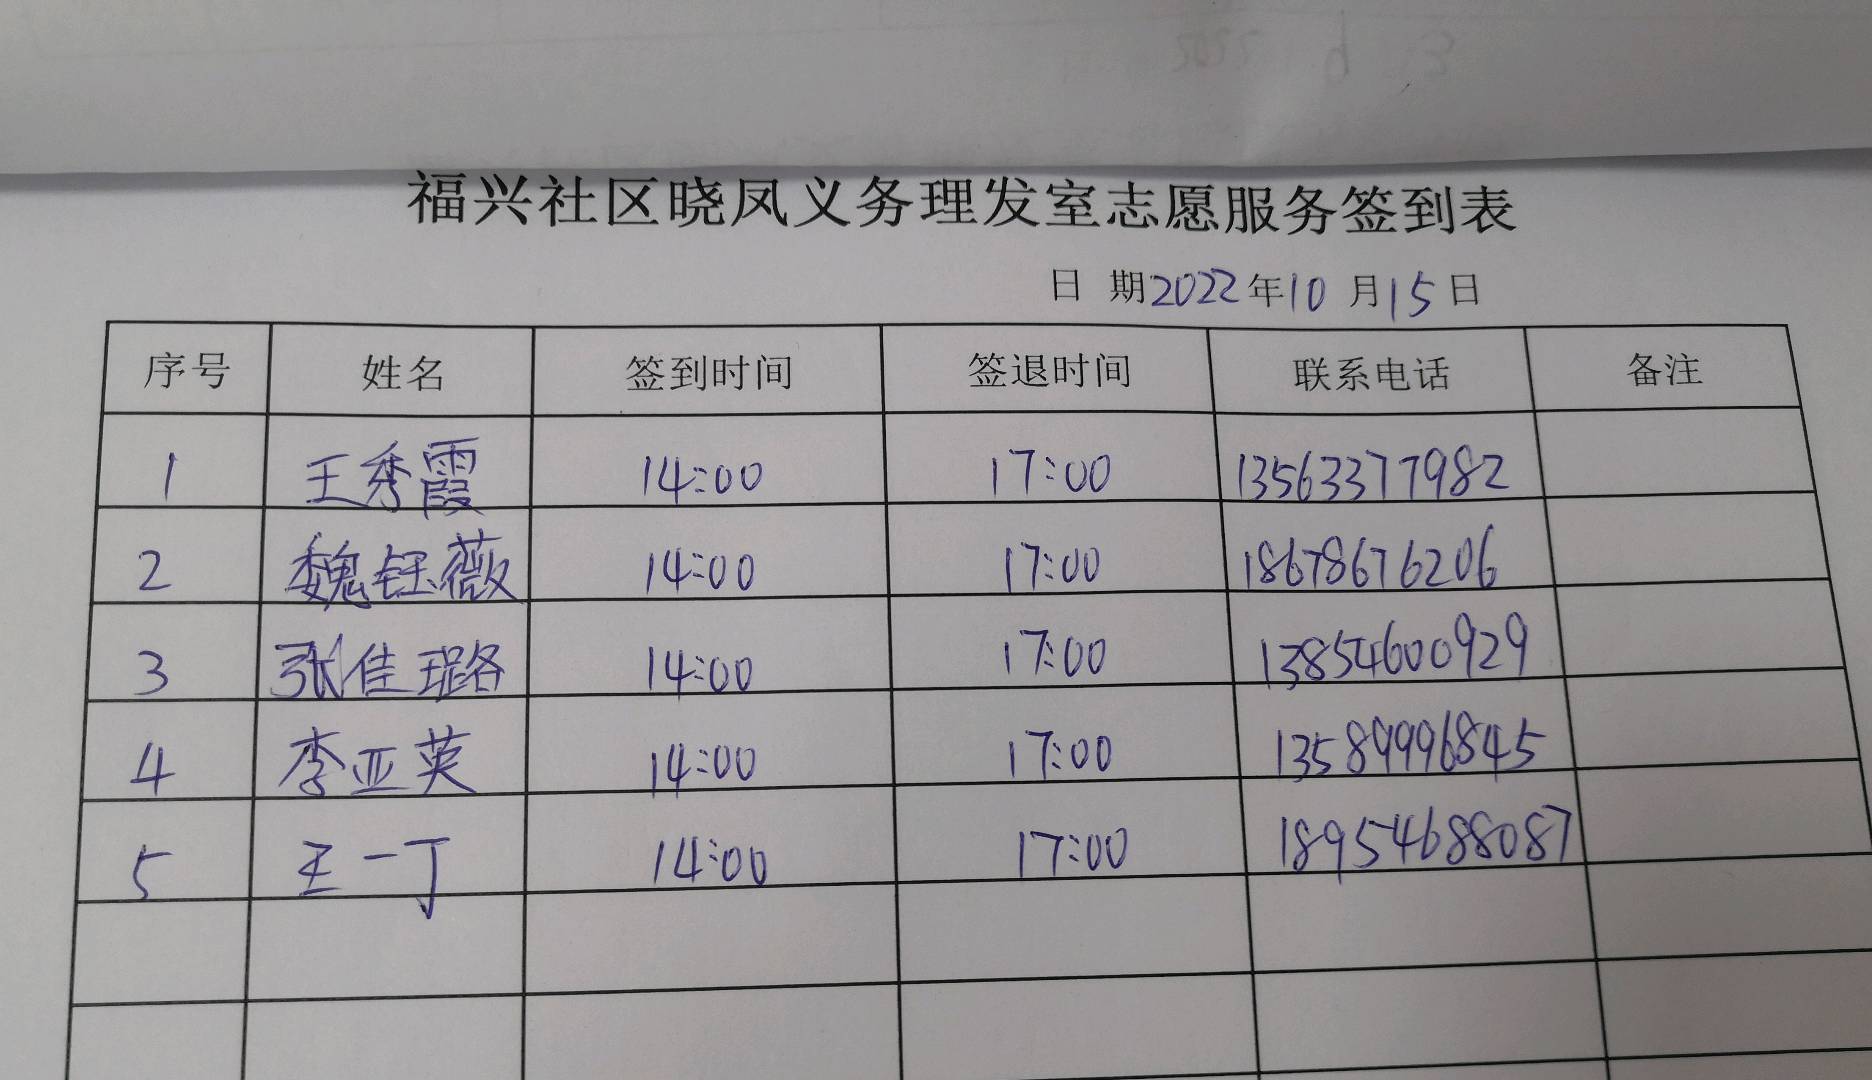 福兴社区晓凤义务理发室志愿服务签到表
日 期2022年10月15日
序号 姓名 签到时间 签退时间 联系电话 备注
1 王秀霞 14:00 17:00 13563377982
2 魏钰薇 14:00 17:00 18678676206
3 张佳璐 14:00 17:00 13854600929
4 李亚英 14:00 17:00 13589996845
5 王一丁 14:00 17:00 18954688087